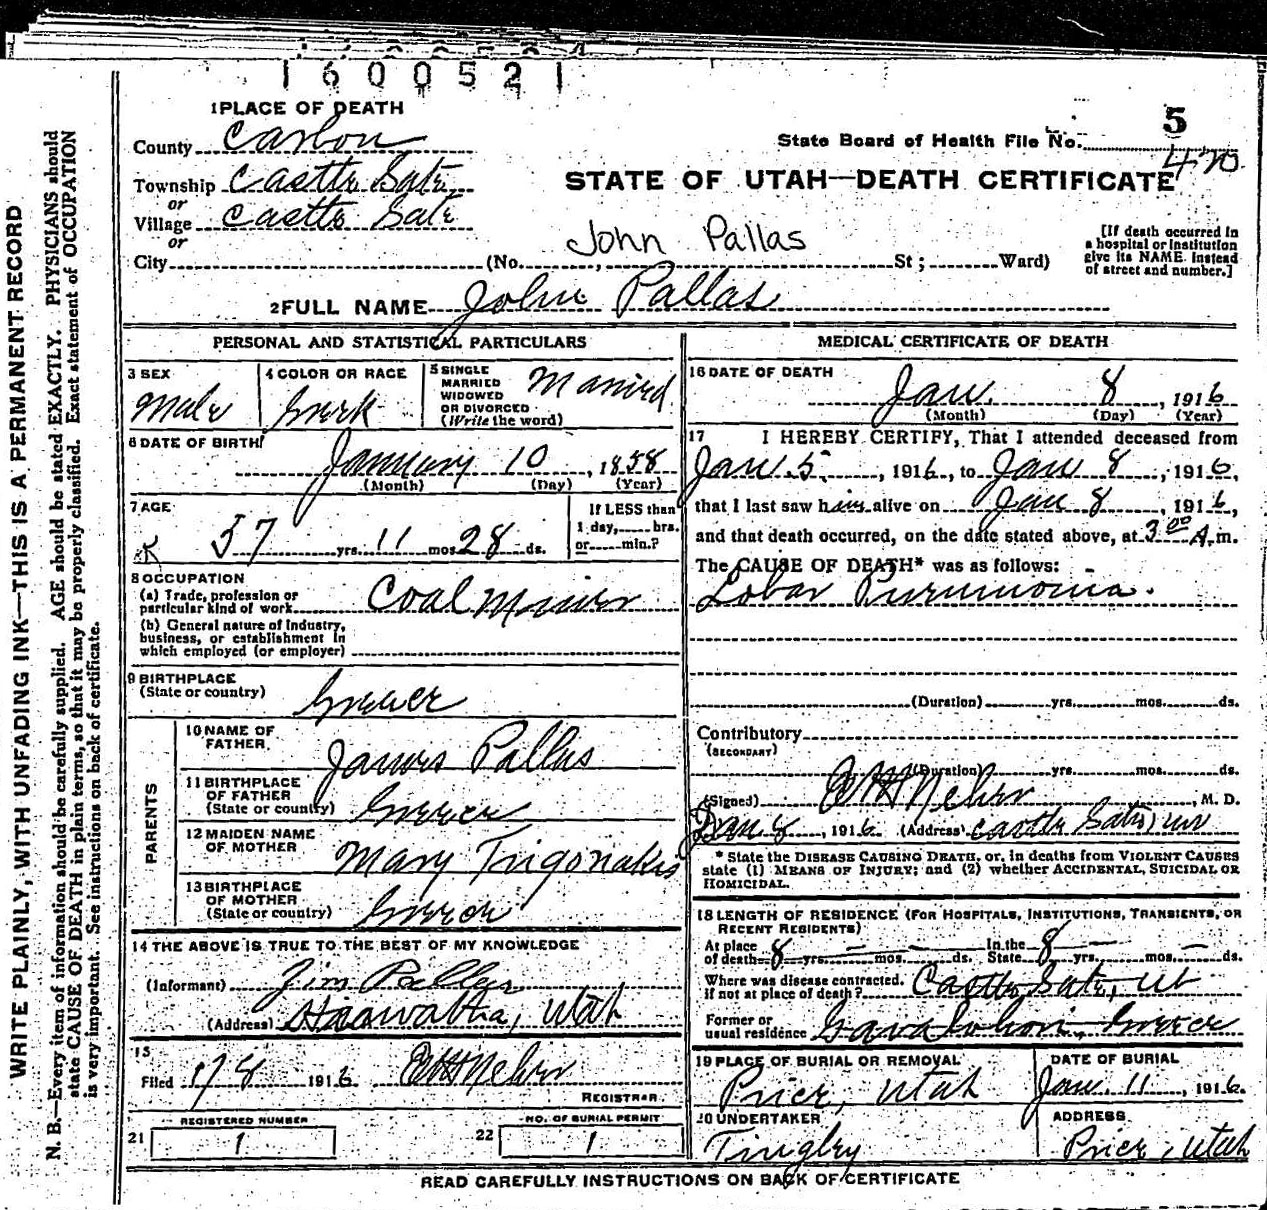 1600521
1 PLACE OF DEATH
County Carbon
Township Castle Gate
or
Village Castle Gate
or
City (No. , St ; Ward)
John Pallas
5
State Board of Health File No.
420
STATE OF UTAH—DEATH CERTIFICATE
[If death occurred in
a hospital or institution
give its NAME instead
of street and number.]
2 FULL NAME John Pallas
PERSONAL AND STATISTICAL PARTICULARS
3 SEX
Male
4 COLOR OR RACE
Greek
5 SINGLE
MARRIED
WIDOWED
OR DIVORCED
(Write the word)
Married
6 DATE OF BIRTH
January 10, 1858
(Month) (Day) (Year)
7 AGE
57 yrs. 11 mos. 28 ds.
If LESS than
1 day, hrs.
or min.?
8 OCCUPATION
(a) Trade, profession or
particular kind of work Coal Miner
(b) General nature of Industry,
business, or establishment in
which employed (or employer)
9 BIRTHPLACE
(State or country)
Greece
PARENTS
10 NAME OF
FATHER
James Pallas
11 BIRTHPLACE
OF FATHER
(State or country)
Greece
12 MAIDEN NAME
OF MOTHER
Mary Trigonakis
13 BIRTHPLACE
OF MOTHER
(State or country)
Greece
14 THE ABOVE IS TRUE TO THE BEST OF MY KNOWLEDGE
(Informant) Jim Pallas
(Address) Hiawatha, Utah
15
Filed 1/8 1916
REGISTRAR
REGISTERED NUMBER
21 1
NO. OF BURIAL PERMIT
22 1
MEDICAL CERTIFICATE OF DEATH
16 DATE OF DEATH
Jan. 8, 1916
(Month) (Day) (Year)
17 I HEREBY CERTIFY, That I attended deceased from
Jan. 5, 1916, to Jan 8, 1916,
that I last saw him alive on Jan 8, 1916,
and that death occurred, on the date stated above, at 3 00 A.m.
The CAUSE OF DEATH* was as follows:
Lobar Pneumonia.
(Duration) yrs. mos. ds.
Contributory
(SECONDARY)
(Duration) yrs. mos. ds.
(Signed) , M. D.
Jan 8, 1916 (Address) Castle Gate,
* State the DISEASE CAUSING DEATH, or, in deaths from VIOLENT CAUSES
state (1) MEANS OF INJURY; and (2) whether ACCIDENTAL, SUICIDAL OR
HOMICIDAL.
18 LENGTH OF RESIDENCE (FOR HOSPITALS, INSTITUTIONS, TRANSIENTS, OR
RECENT RESIDENTS)
At place
of death 8 yrs. — mos. — ds. In the State 8 yrs. — mos. — ds.
Where was disease contracted.
if not at place of death? Castle Gate, Ut
Former or
usual residence Greece
19 PLACE OF BURIAL OR REMOVAL
Price, Utah
DATE OF BURIAL
Jan. 11, 1916.
20 UNDERTAKER
Tingley
ADDRESS
Price, Utah
READ CAREFULLY INSTRUCTIONS ON BACK OF CERTIFICATE
WRITE PLAINLY, WITH UNFADING INK—THIS IS A PERMANENT RECORD
N. B.—Every item of information should be carefully supplied. AGE should be stated EXACTLY. PHYSICIANS should
state CAUSE OF DEATH in plain terms, so that it may be properly classified. Exact statement of OCCUPATION
is very important. See instructions on back of certificate.